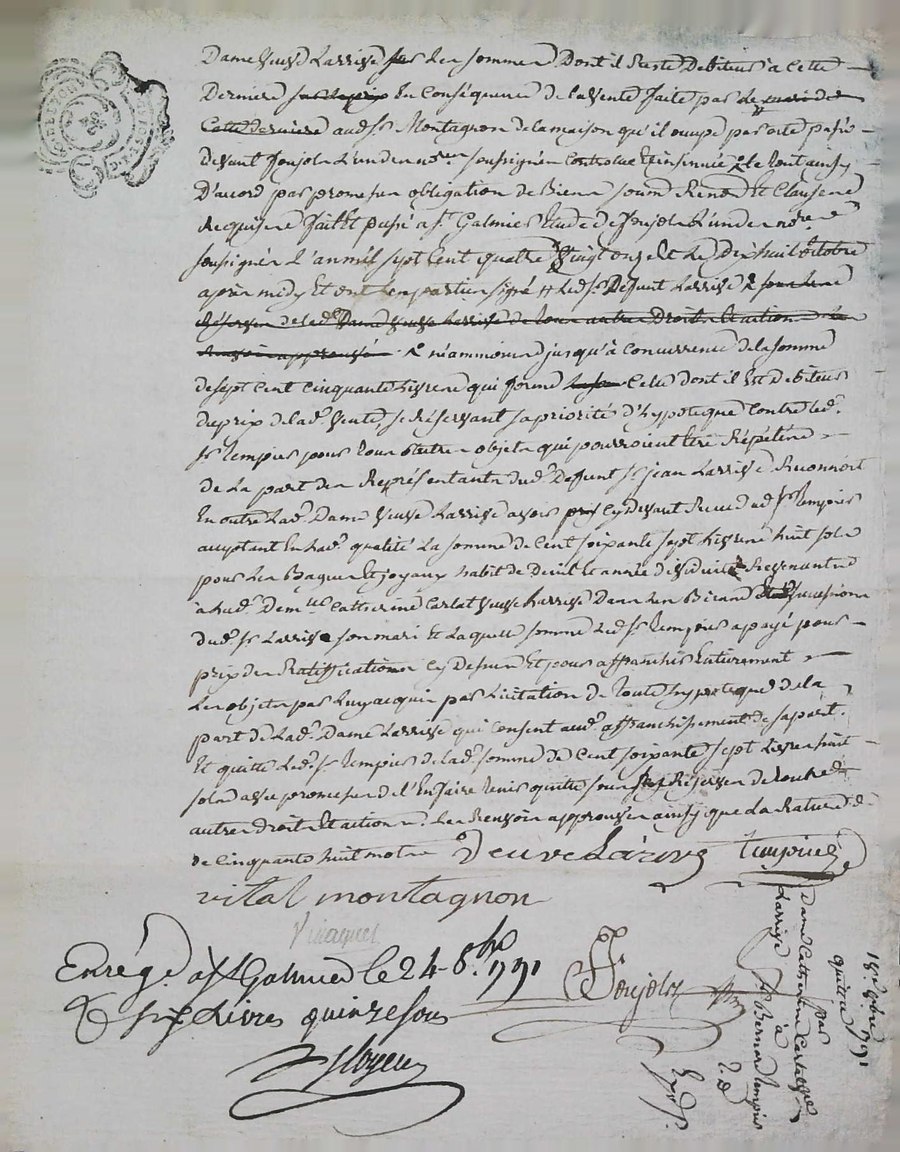 Dame veuve Larrive sur les sommes Dont il Reste Debiteur a Cette
Derniere En Conséquence de la vente faite par
Cette derniere aud. Sr. Montagnon de la maison qu'il occupe par acte passé
devant Jonjolz L'un des nores. soussignés Controlé et insinué le tout ainsy
D'acord par promesses obligation de Biens soum. Renon. Et Clauses
Requises fait Et passé a St. Galmier Etude de Jonjolz L'un des nores.
soussignés L'an mil sept Cent quatre vingt onze Et Le Dix huit octobre
après midy Et ont Les parties signé Led. Sr. Défunt Larrive
Réserver de lad. Dame veuve Larrive de tous autres Droits Et actions
approuvée néammoins jusqu'à Concurrence de la somme
de sept Cent Cinquante Livres qui forme Celle dont il Est Debiteur
du prix de lad. vente, se Réservant sa priorité d'hypoteque Contre led.
Sr. Tempier pour tous autres objets qui pourroient être Répétés
de La part des Représentants dud. Defunt Sr. jean Larrive Reconnoit
En outre Lad. Dame veuve Larrive avoir Cy devant Recu dud. Sr. Tempier
acceptant En lad. qualité La somme de Cent soixante sept Livres huit sols
pour Les Bagues Et joyaux habit de Deuil Et année de viduité Revenant
a lad. Demlle. Catherine Carlat veuve Larrive Dans Les Biens Et succession
dud. Sr. Larrive son mari Et Laquelle somme Led. Sr. Tempier a payé pour
prix des Ratiffications Cy dessus Et pour affranchir Entierement
Les objets par Luy acquis par Licitation de toute hypoteque de la
part de Lad. Dame Larrive qui Consent aud. affranchissement de sa part.
Et quitte Led. Sr. Tempier de Lad. somme de Cent soixante sept Livres huit
sols avec promesse de l'En faire tenir quitte sous Reserve de tous
autres Droits Et actions. Les Renvois approuvés ainsy que La Rature
de Cinquante huit mots Veuve Larive Tempier
vital montagnon
Enregé. a St Galmier le 24 8.bre 1791
six Livres quinze sous
Jonjolz
18 8bre 1791
quittance
par
Dame Catherine Carlat veuve
Larrive
à
Sr. Bernard Tempier